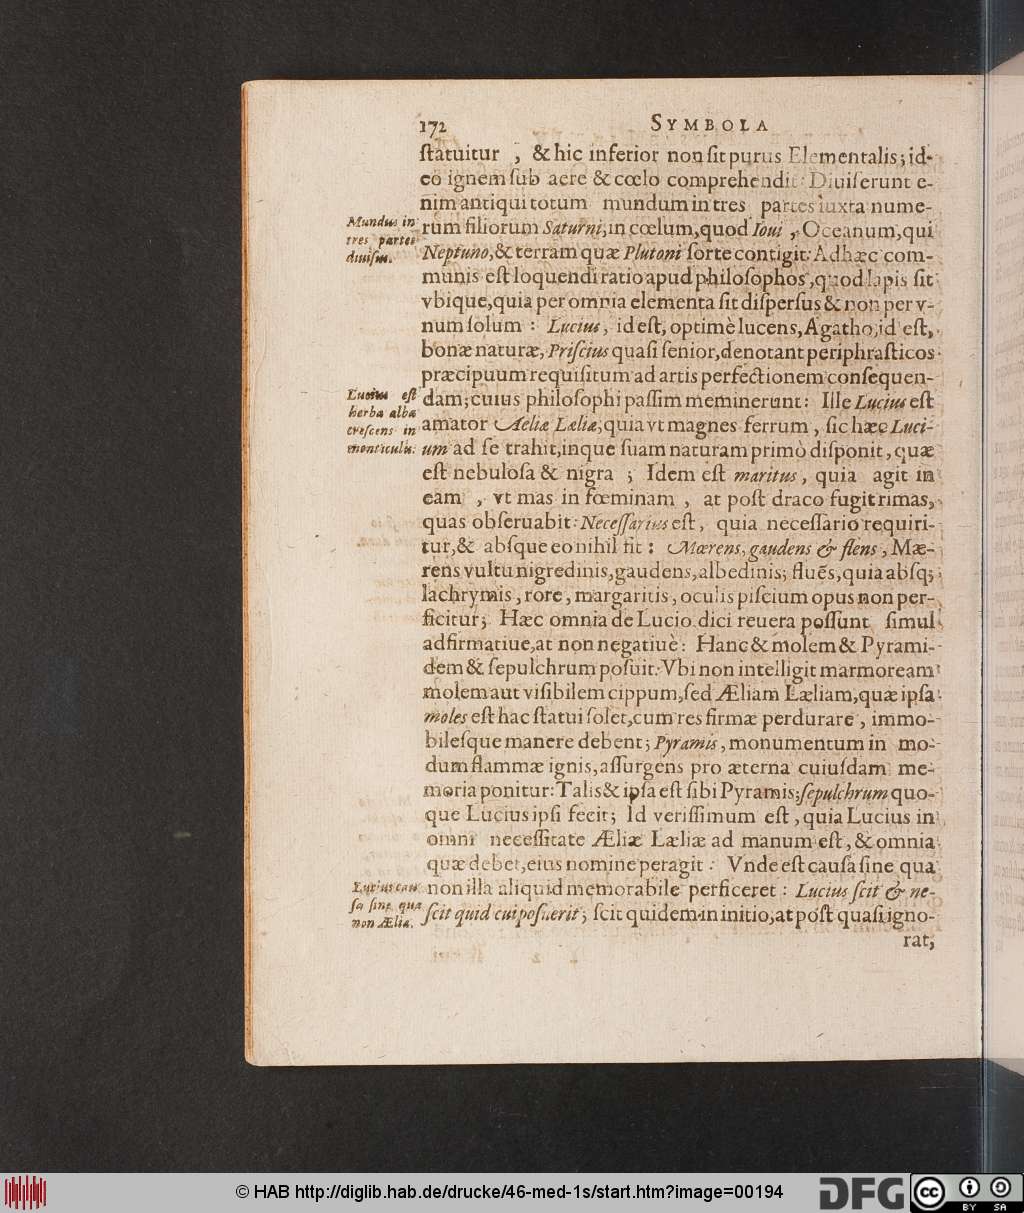 172
SYMBOLA
ſtatuitur , & hic inferior non ſit purus Elementalis; id-
eò ignem ſub aere & cœlo comprehendit: Diuiſerunt e-
nim antiqui totum mundum in tres partes iuxta nume-
rum filiorum Saturni, in cœlum, quod Ioui , Oceanum, qui
Neptuno, & terram quæ Plutoni ſorte contigit: Ad hæc com-
munis eſt loquendi ratio apud philoſophos, quod lapis ſit
vbique, quia per omnia elementa ſit diſperſus & non per v-
num ſolum : Lucius, id eſt, optimè lucens, Agatho, id eſt,
bonæ naturæ, Priſcius quaſi ſenior, denotant periphraſticos
præcipuum requiſitum ad artis perfectionem conſequen-
dam; cuius philoſophi paſſim meminerunt: Ille Lucius eſt
amator Aeliæ Læliæ, quia vt magnes ferrum , ſic hæc Luci-
um ad ſe trahit, inque ſuam naturam primò diſponit, quæ
eſt nebuloſa & nigra ; Idem eſt maritus, quia agit in
eam , vt mas in fœminam , at poſt draco fugit rimas,
quas obſeruabit: Neceſſarius eſt, quia neceſſario requiri-
tur, & abſque eo nihil fit : Mærens, gaudens & flens, Mæ-
rens vultu nigredinis, gaudens, albedinis; fluẽs, quia abſq;
lachrymis, rore, margaritis, oculis piſcium opus non per-
ficitur; Hæc omnia de Lucio dici reuera poſſunt ſimul
adfirmatiue, at non negatiuè: Hanc & molem & Pyrami-
dem & ſepulchrum poſuit: Vbi non intelligit marmoream
molem aut viſibilem cippum, ſed Æliam Læliam, quæ ipſa
moles eſt hac ſtatui ſolet, cum res firmæ perdurare , immo-
bileſque manere debent; Pyramis, monumentum in mo-
dum flammæ ignis, aſſurgens pro æterna cuiuſdam me-
moria ponitur: Talis & ipſa eſt ſibi Pyramis; ſepulchrum quo-
que Lucius ipſi fecit; Id veriſſimum eſt, quia Lucius in
omni neceſſitate Æliæ Læliæ ad manum eſt, & omnia
quæ debet, eius nomine peragit : Vnde eſt cauſa ſine qua
non illa aliquid memorabile perficeret : Lucius ſcit & ne-
ſcit quid cui poſuerit; ſcit quidem in initio, at poſt quaſi igno-
rat,
Mundus in
tres partes
diuiſus.
Lucius eſt
herba alba
creſcens in
monticulis.
Lucius cau
ſa ſine qua
non Ælia.
© HAB http://diglib.hab.de/drucke/46-med-1s/start.htm?image=00194
DFG
cc
BY SA